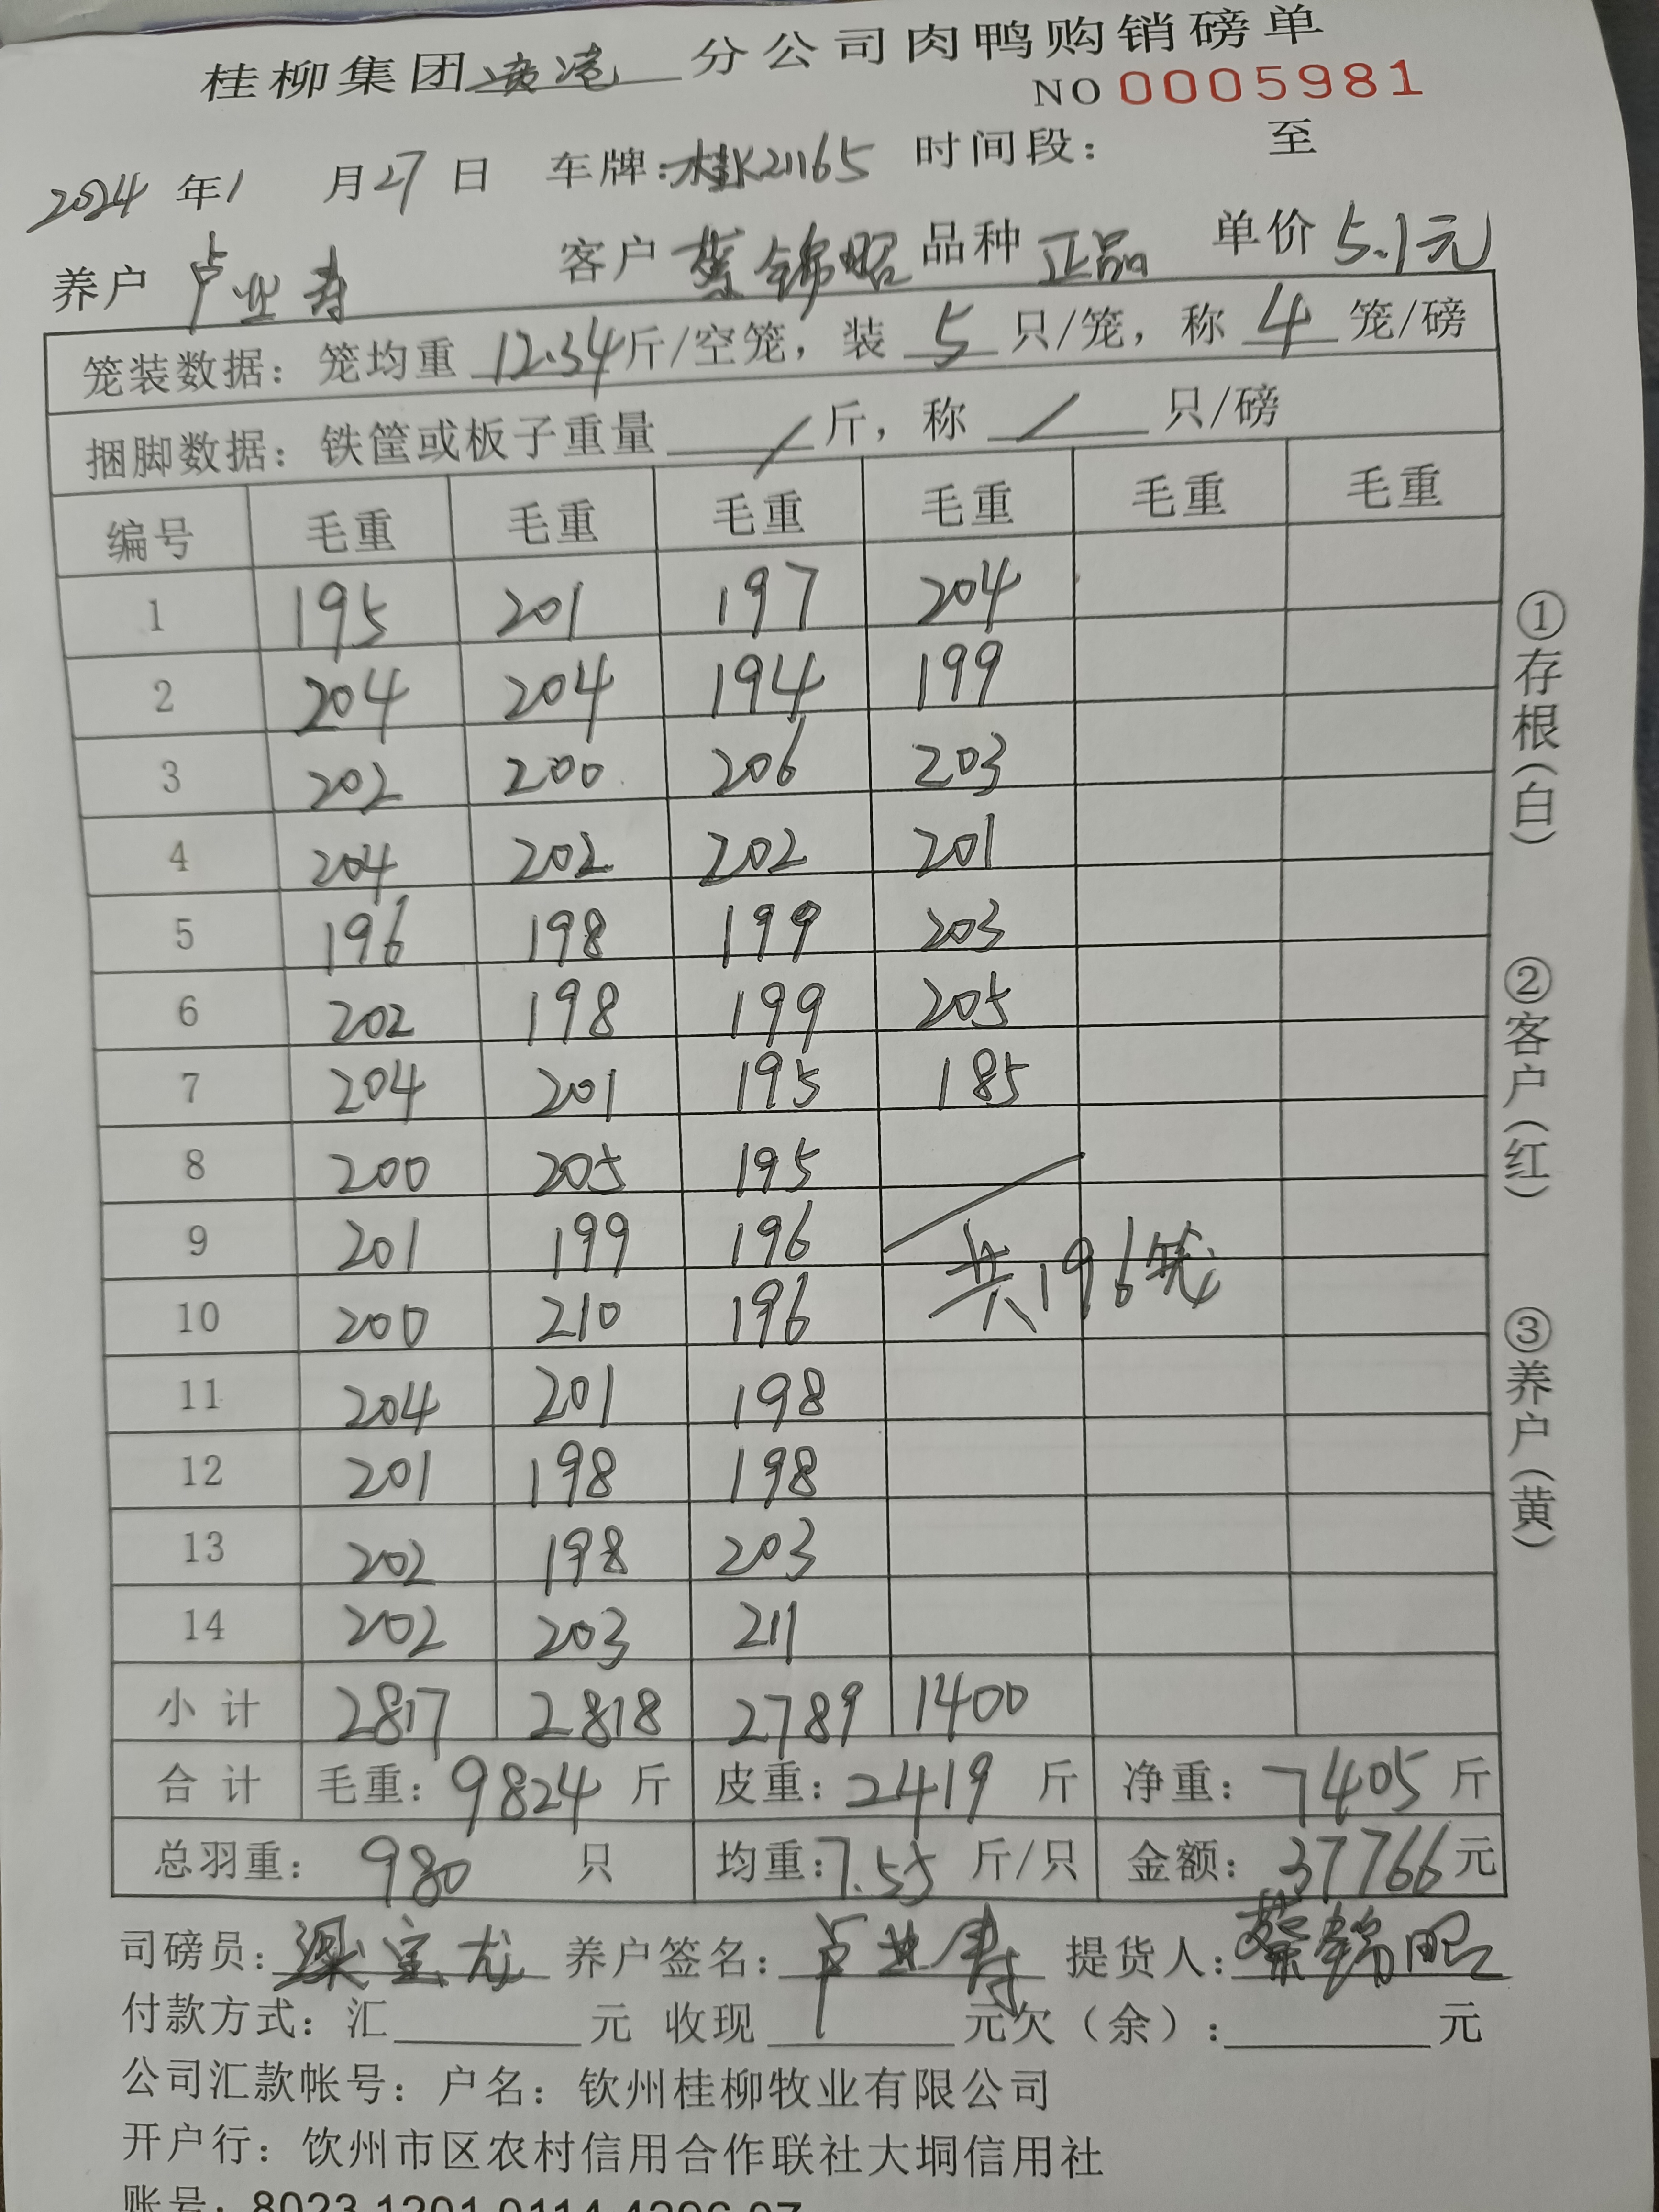 桂柳集团 分公司肉鸭购销磅单
NO 0005981
2024 年 1 月 27 日 车牌:桂K21165 时间段: 至
养户 卢业寿 客户 蔡锦昭 品种 正品 单价 5.1元
笼装数据: 笼均重 12.34 斤/空笼, 装 5 只/笼, 称 4 笼/磅
捆脚数据: 铁筐或板子重量 / 斤, 称 / 只/磅
编号 毛重 毛重 毛重 毛重 毛重 毛重
1 195 201 197 204
2 204 204 194 199
3 202 200 206 203
4 204 202 202 201
5 196 198 199 203
6 202 198 199 205
7 204 201 195 185
8 200 205 195
9 201 199 196
10 200 210 196 共196笼
11 204 201 198
12 201 198 198
13 202 198 203
14 202 203 211
小计 2817 2818 2789 1400
合计 毛重: 9824 斤 皮重: 2419 斤 净重: 7405 斤
总羽重: 980 只 均重: 7.55 斤/只 金额: 37766 元
司磅员: 梁宝龙 养户签名: 卢业寿 提货人: 蔡锦昭
付款方式: 汇 元 收现 元欠(余): 元
公司汇款帐号: 户名: 钦州桂柳牧业有限公司
开户行: 钦州市区农村信用合作联社大垌信用社
账号:
①存根(白)
②客户(红)
③养户(黄)